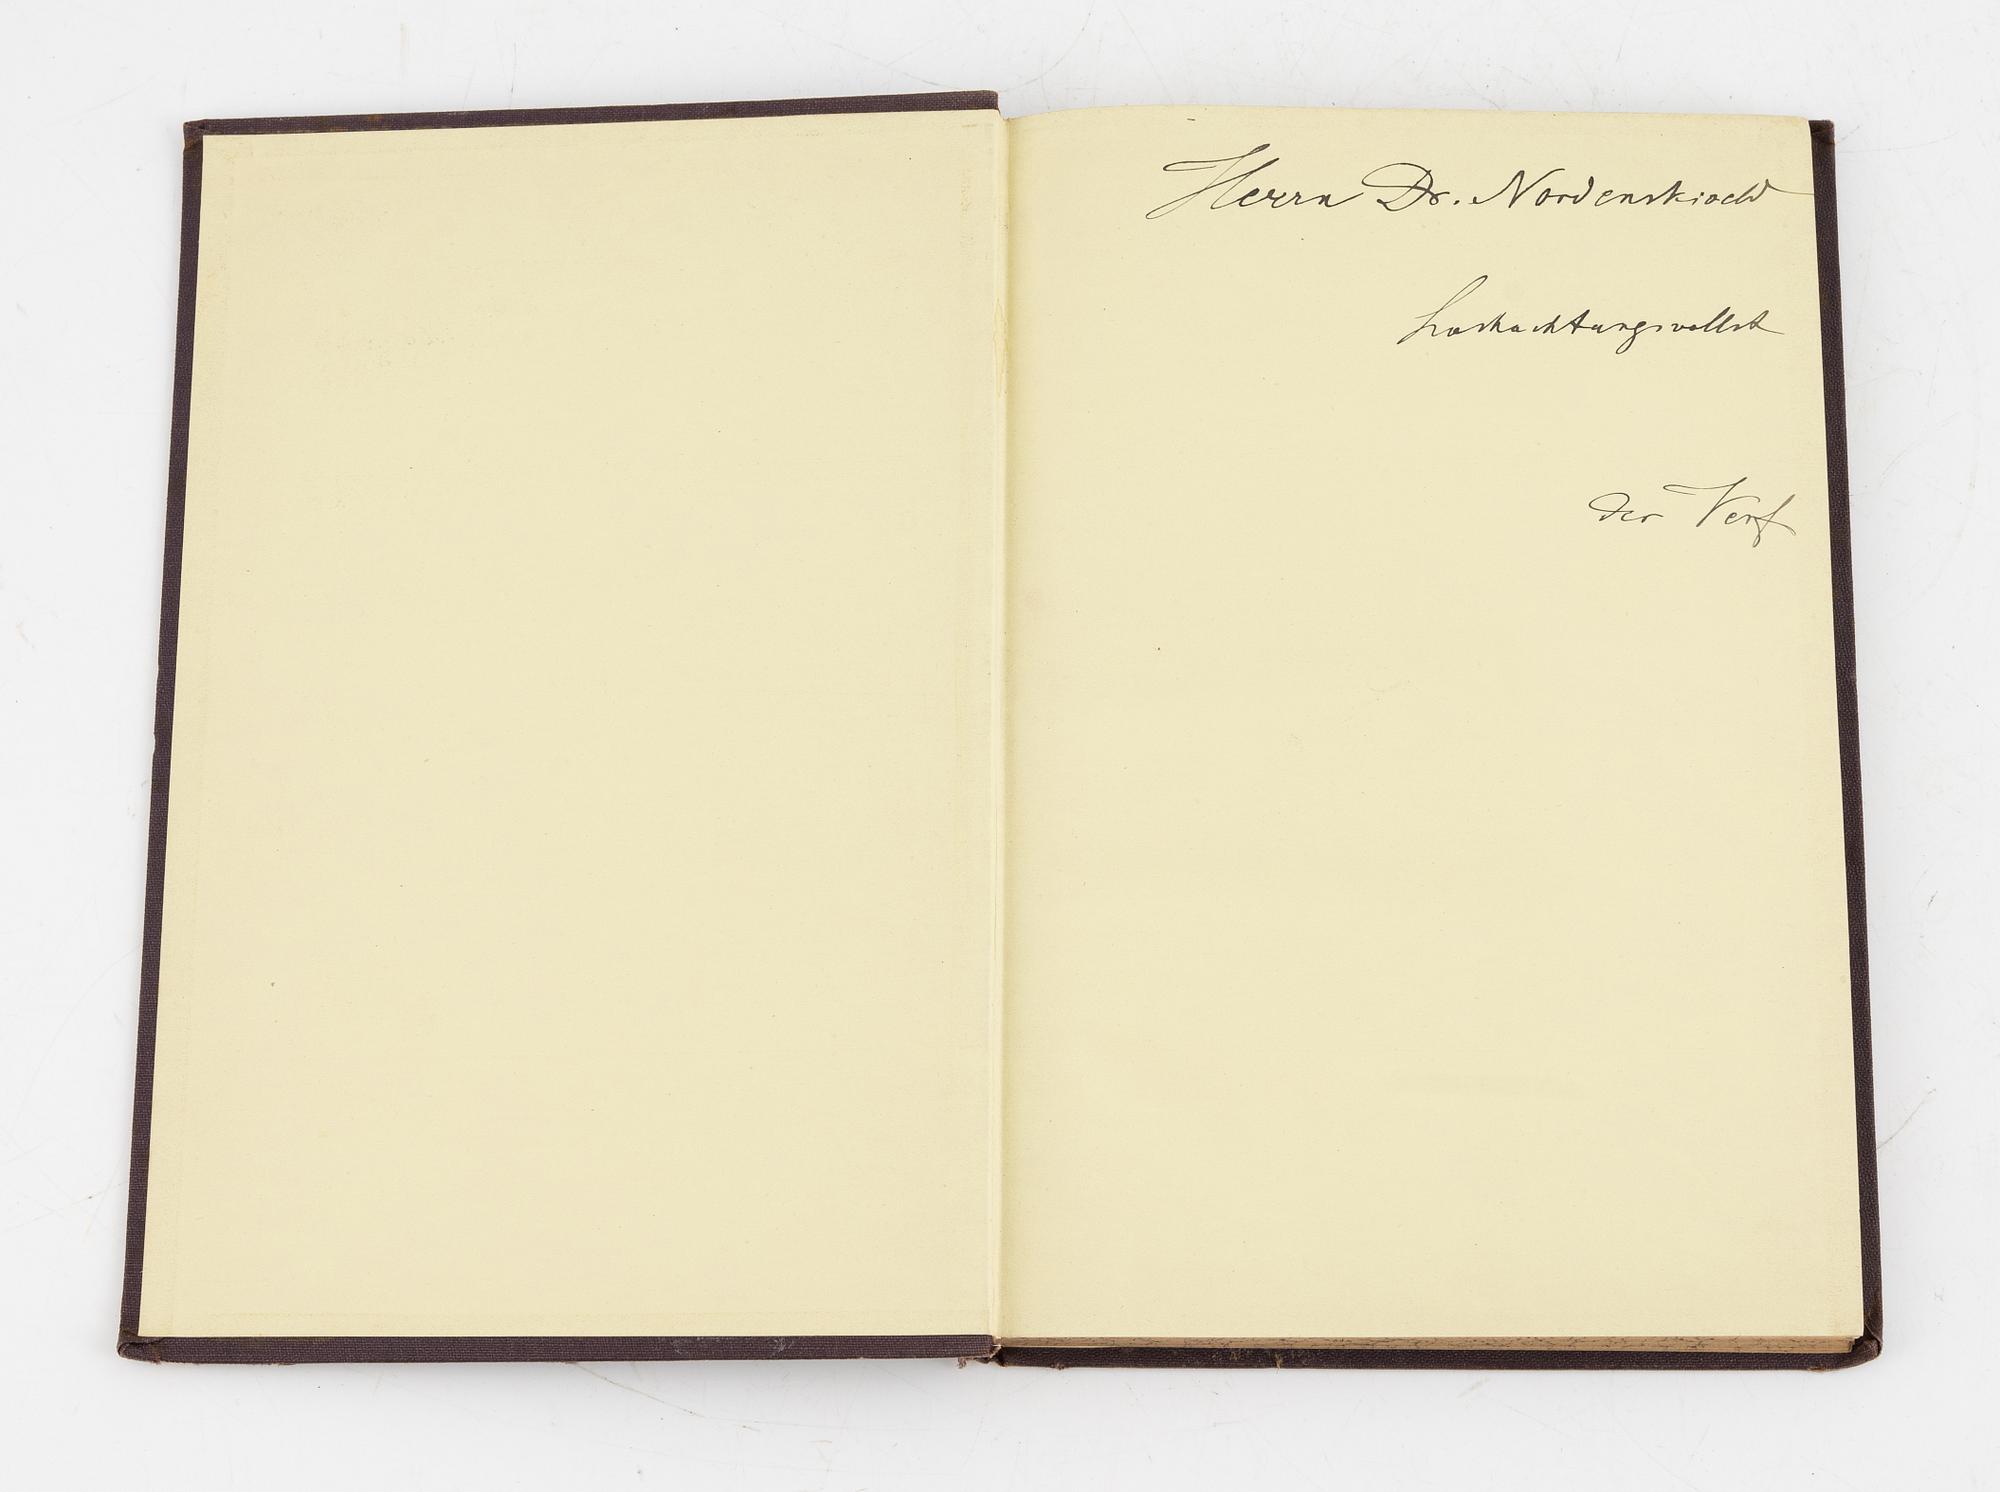 Herrn Dr. Nordenskioeld
hochachtungsvollst
der Verf